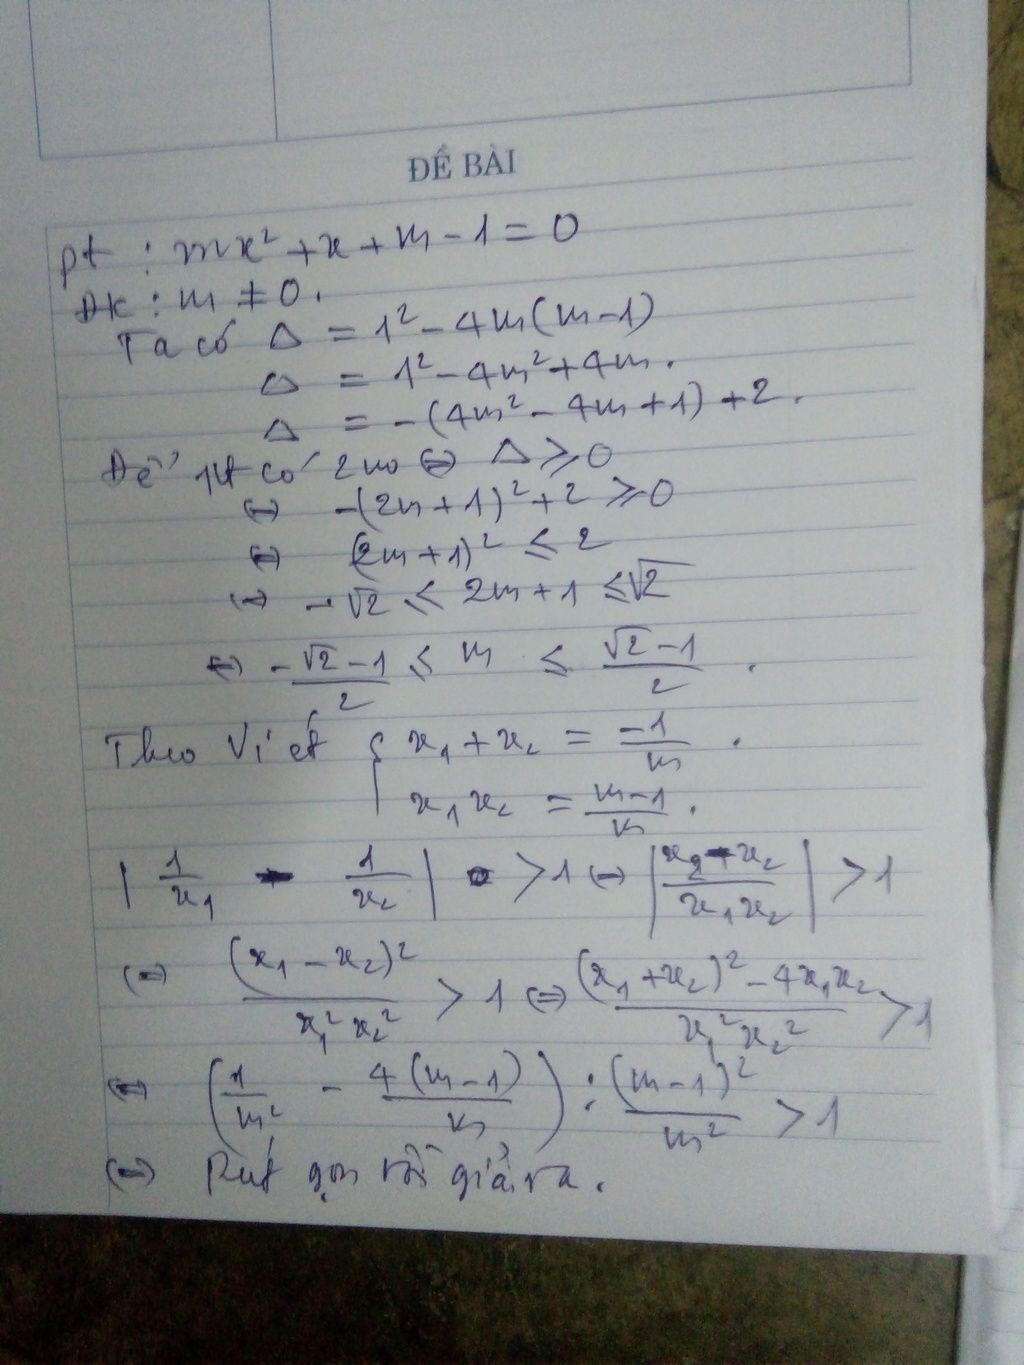 ĐỀ BÀI
pt : mx² + x + m - 1 = 0
ĐK : m ≠ 0.
Ta có Δ = 1² - 4m(m-1)
Δ = 1² - 4m² + 4m.
Δ = -(4m² - 4m + 1) + 2.
Để pt có 2 no ⇔ Δ ⩾ 0
⇔ -(2m + 1)² + 2 ⩾ 0
⇔ (2m + 1)² ⩽ 2
⇔ -√2 ⩽ 2m + 1 ⩽ √2
⇔ (-√2 - 1)/2 ⩽ m ⩽ (√2 - 1)/2 .
Theo Vi ét { x₁ + x₂ = -1/m .
x₁x₂ = (m-1)/m .
|1/x₁ - 1/x₂| > 1 ⇔ |(x₂ - x₂)/(x₁x₂)| > 1
⇔ (x₁ - x₂)²/(x₁²x₂²) > 1 ⇔ ((x₁ + x₂)² - 4x₁x₂)/(x₁²x₂²) > 1
⇔ (1/m² - 4(m-1)/m) : (m-1)²/m² > 1
⇔ Rút gọn rồi giải ra.